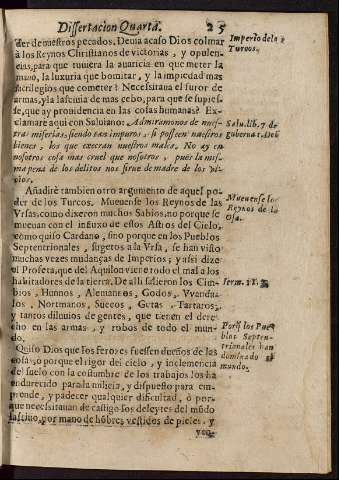 Dissertacion Quarta. 25
der de nuestros pecados. Deuia acaso Dios colmar
à los Reynos Christianos de victorias, y opulen-
cias, para que tuuiera la auaricia en que meter la
mano, la luxuria que bomitar, y la impiedad mas
sacrilegios que cometer? Necessitaua el furor de
armas, y la lasciuia de mas cebo, para que se supies-
se, que ay prouidencia en las cosas humanas? Ex-
clamarè aqui con Saluiano: Admiramonos de nues-
tras miserias, siendo tan impuros, si posseen nuestros
bienes, los que execran nuestros males. No ay en
nosotros cosa mas cruel que nosotros, pues la mis-
ma pena de los delitos nos sirue de madre de los vi-
cios.
Añadirè tambien otro argumento de aquel po-
der de los Turcos. Mueuense los Reynos de las
Vrsas, como dixeron muchos Sabios, no porque se
mueuan con el influxo de estos Astros del Cielo,
como quiso Cardano, sino porque en los Pueblos
Septentrionales, sugetos a la Vrsa, se han visto
muchas vezes mudanças de Imperios; y assi dize
el Profeta, que del Aquilon viene todo el mal a los
habitadores de la tierra. De alli salieron los Cim-
bios, Hunnos, Alemanes, Godos, Vvenda-
los, Nortmanos, Suecos, Getas, Tartaros,
y tantos diluuios de gentes, que tienen el dere-
cho en las armas, y robos de todo el mun-
do.
Quiso Dios que los ferozes fuessen dueños de las
cosas, o porque el rigor del cielo, y inclemencia
del suelo con la costumbre de los trabajos los ha
endurecido para la milicia, y dispuesto para em-
prende, y padecer qualquier dificultad, ò por-
que necessitauan de castigo los deleytes del mũdo
lasciuo, por mano de hõbres vestidos de pieles, y
yen-
Imperio de los
Turcos.
Salu. lib. 7 de
gubernat. Dei
Mueuense los
Reynos de la
Osa.
Ierm. 11.
Porq̃ los Pue
blos Septen-
trionales han
dominado el
mundo.